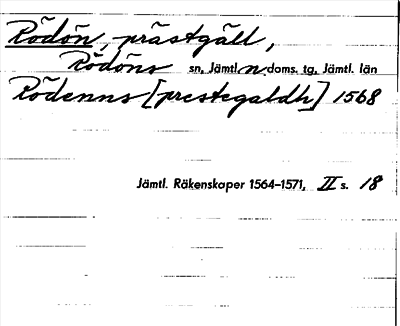 Rödön, prästgäll,
Rödöns sn, Jämtl. n. doms. tg, Jämtl. län
Rödenns [prestegaldh] 1568
Jämtl. Räkenskaper 1564–1571, II s. 18